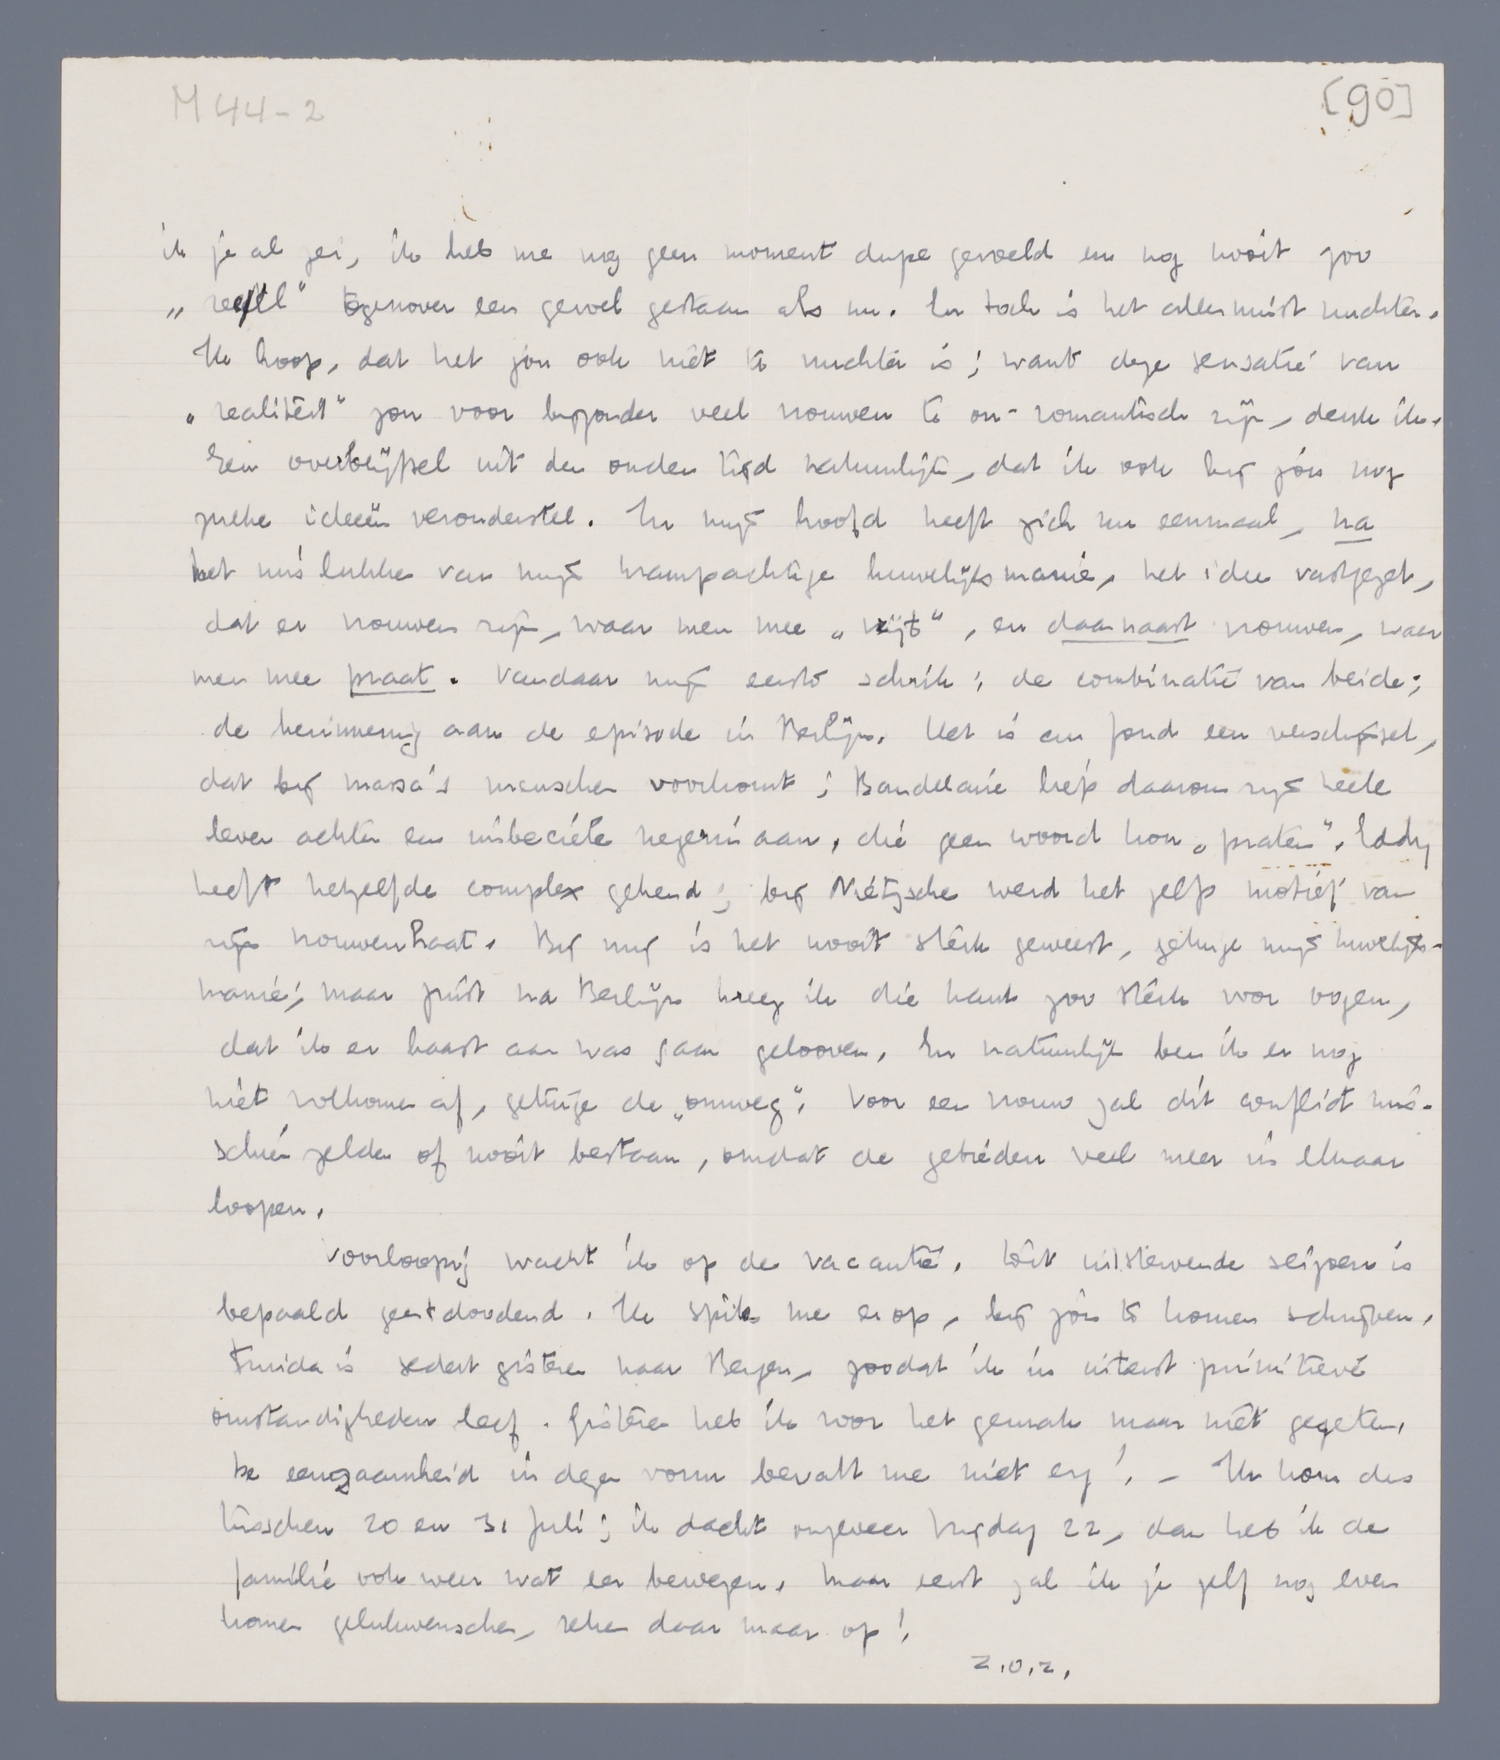 M 44-2
[90]
ik je al zei, ik heb me nog geen moment dupe gevoeld en nog nooit zoo
„reëel" tegenover een gevoel gestaan als nu. En toch is het allerminst nuchter.
Ik hoop, dat het jou ook niet te nuchter is; want deze sensatie van
„realiteit" zou voor bijzonder veel vrouwen te on-romantisch zijn, denk ik.
Een overblijfsel uit den ouden tijd natuurlijk, dat ik ook bij jóu nog
zulke ideeën veronderstel. In mijn hoofd heeft zich nu eenmaal, na
het mislukken van mijn krampachtige huwelijksmanie, het idee vastgezet,
dat er vrouwen zijn, waar men mee „vrijt", en daarnaast vrouwen, waar
men mee praat. Vandaar mijn eerste schrik: de combinatie van beide;
de herinnering aan de episode in Berlijn. Het is au fond een verschijnsel,
dat bij massa's menschen voorkomt; Baudelaire liep daarom zijn heele
leven achter een imbeciele negerin aan, die geen woord kon „praten". Eddy
heeft hetzelfde complex gekend; bij Nietzsche werd het zelfs motief van
zijn vrouwenhaat. Bij mij is het nooit sterk geweest, getuige mijn huwelijks-
manie; maar juist na Berlijn kreeg ik die kant zoo sterk voor oogen,
dat ik er haast aan was gaan gelooven. En natuurlijk ben ik er nog
niet volkomen af, getuige de „omweg". Voor een vrouw zal dit conflict mis-
schien zelden of nooit bestaan, omdat de gebieden veel meer in elkaar
loopen.
Voorloopig wacht ik op de vacantie. Dit uitstervende seizoen is
bepaald geestdoodend. Ik spits me er op, bij jou te komen schrijven.
Truida is sedert gisteren naar Bergen, zoodat ik in uiterst primitieve
omstandigheden leef. Gisteren heb ik voor het gemak maar niet gegeten.
De eenzaamheid in dezen vorm bevalt me niet erg! – Ik kom dus
tusschen 20 en 31 Juli; ik dacht ongeveer Vrijdag 22, dan heb ik de
familie ook weer wat zien bewegen. Maar eerst zal ik je zelf nog even
komen gelukwenschen, reken daar maar op!
Z.O.Z.